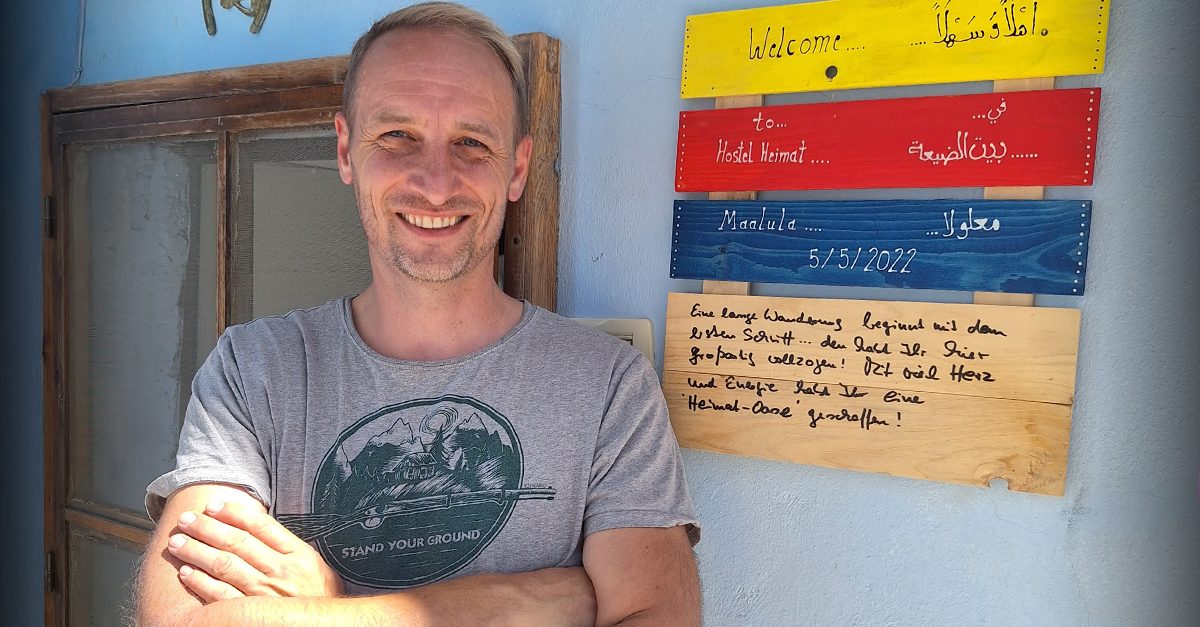 Welcome.... ....اهْلاً وَ سَهْلاً.
to... في...
Hostel Heimat.... بيت الضيعة......
Maalula.... معلولا...
5/5/2022
Eine lange Wanderung beginnt mit dem
ersten Schritt... den habt Ihr hier
großartig vollzogen! Mit viel Herz
und Energie habt Ihr eine
'Heimat-Oase' geschaffen!
STAND YOUR GROUND